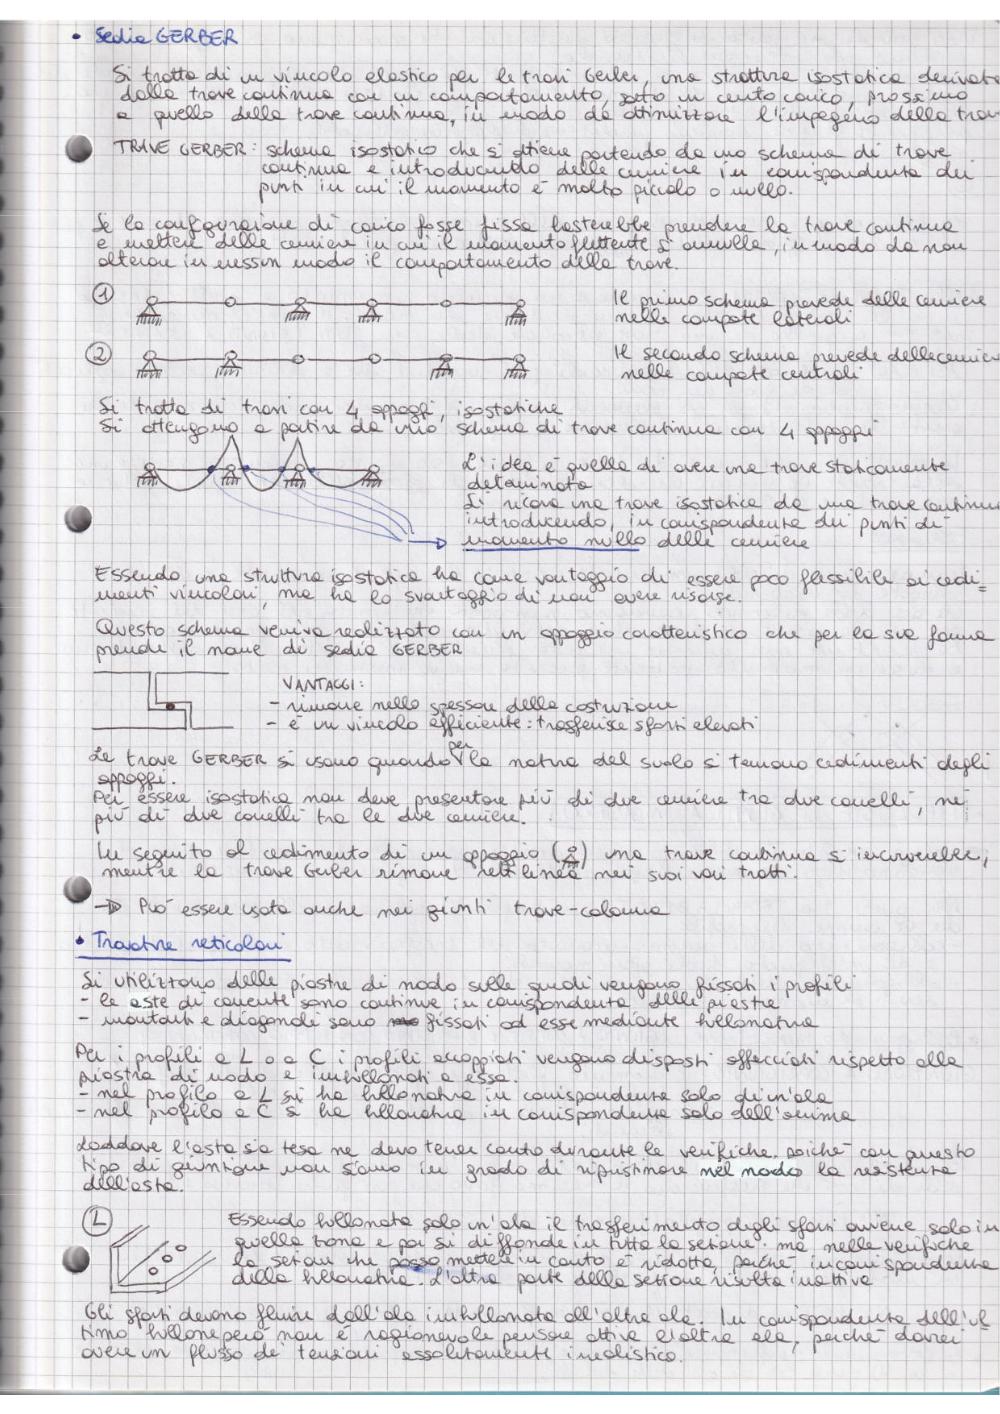 • Sedia GERBER
Si tratta di un vincolo elastico per le travi Gerber, una struttura isostatica derivata
dalla trave continua con un comportamento, sotto un certo carico, prossimo
a quello della trave continua, in modo da ottimizzare l'impegno della trav
TRAVE GERBER: schema isostatico che si ottiene partendo da uno schema di trave
continua e introducendo delle cerniere in corrispondenza dei
punti in cui il momento è molto piccolo o nullo.
Se la configurazione di carico fosse fissa basterebbe prendere la trave continua
e mettere delle cerniere in cui il momento flettente si annulla, in modo da non
alterare in nessun modo il comportamento della trave.
① Il primo schema prevede delle cerniere
nelle campate laterali
② Il secondo schema prevede delle cernier
nelle campate centrali
Si tratta di travi con 4 appoggi, isostatiche
Si ottengono a partire da uno schema di trave continua con 4 appoggi
L'idea è quella di avere una trave staticamente
determinata
Si ricava una trave isostatica da una trave continua
introducendo, in corrispondenza dei punti di
momento nullo delle cerniere
Essendo una struttura isostatica ha come vantaggio di essere poco flessibile ai cedi=
menti vincolari, ma ha lo svantaggio di non avere risorse.
Questo schema veniva realizzato con un appoggio caratteristico che per la sua forma
prende il nome di sedia GERBER
VANTAGGI:
- rimane nello spessore della costruzione
- è un vincolo efficiente: trasferisce sforzi elevati
Le trave GERBER si usano quando per la natura del suolo si temono cedimenti degli
appoggi.
Per essere isostatica non deve presentare più di due cerniere tra due carrelli, né
più di due carrelli tra le due cerniere.
In seguito al cedimento di un appoggio ( ) una trave continua si incurverebbe,
mentre la trave Gerber rimane rettilinea nei suoi vari tratti.
→ Può essere usata anche nei giunti trave-colonna
• Travature reticolari
Si utilizzano delle piastre di nodo sulle quali vengono fissati i profili
- le aste di corrente sono continue in corrispondenza delle piastre
- montanti e diagonali sono fissati ad esse mediante bullonatura
Per i profili a L o a C i profili accoppiati vengono disposti affacciati rispetto alla
piastra di nodo e imbullonati a essa.
- nel profilo a L si ha bullonatura in corrispondenza solo di un'ala
- nel profilo a C si ha bullonatura in corrispondenza solo dell'anima
Laddove l'asta sia tesa ne devo tener conto durante le verifiche, poiché con questo
tipo di giunzione non siamo in grado di ripristinare nel nodo la resistenza
dell'asta.
L Essendo bullonata solo un'ala il trasferimento degli sforzi avviene solo in
quella zona e poi si diffonde in tutta la sezione: ma nelle verifiche
la sezione che posso mettere in conto è ridotta, perché in corrispondenza
della bullonatura l'altra parte della sezione risulta inattiva
Gli sforzi devono fluire dall'ala imbullonata all'altra ala. In corrispondenza dell'ul
timo bullone però non è ragionevole pensare attiva l'altra ala, perché dovrei
avere un flusso di tensioni assolutamente irrealistico.